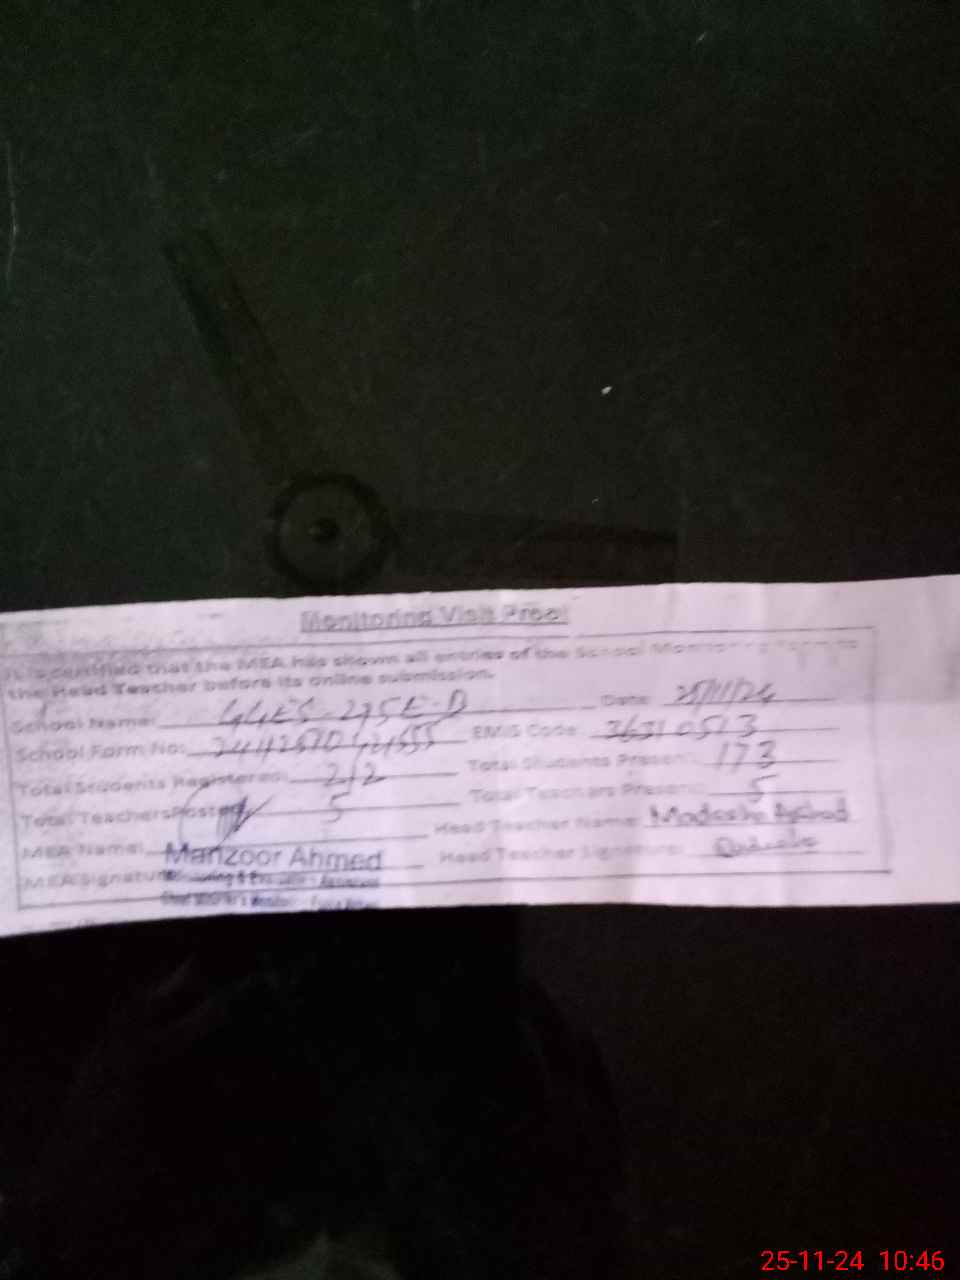 Monitoring Visit Proof
It is certified that the MEA has shown all entries of the School Monitoring Form to
the Head Teacher before its online submission.
School Name: GGES 295 E-B Date: 25/11/24
School Form No: EMIS Code: 36310513
Total Students Registered: 212 Total Students Present: 173
Total Teachers Posted: 5 Total Teachers Present: 5
MEA Name: Manzoor Ahmed Head Teacher Name:
MEA Signature Head Teacher Signature:
25-11-24 10:46